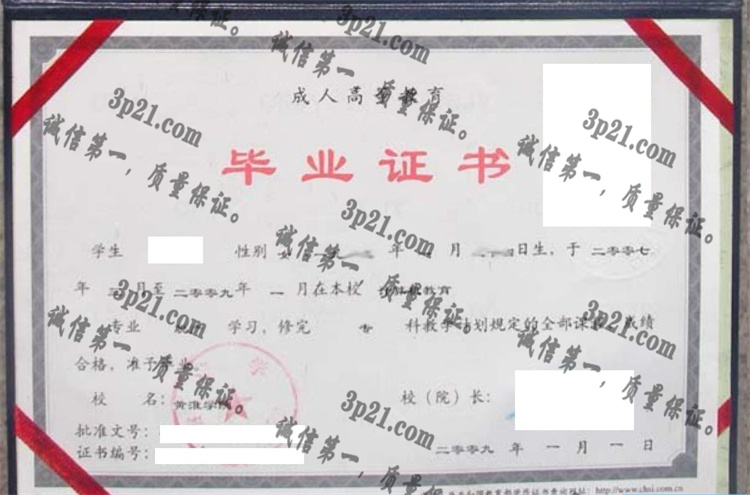 成人高等教育
毕业证书
学生 性别 女 年 月 日生，于 二〇〇七
年 三 月至 二〇〇九 年 一 月在本校 教育
专业 学习，修完 专 科教学计划规定的全部课程，成绩
合格，准予毕业。
校 名：黄淮学院 校（院）长：
批准文号：
证书编号： 二〇〇九 年 一 月 一 日
http://www.chsi.com.cn
3p21.com
诚信第一，质量保证。
3p21.com
诚信第一，质量保证。
3p21.com
诚信第一，质量保证。
3p21.com
诚信第一，质量保证。
3p21.com
诚信第一，质量保证。
3p21.com
诚信第一，质量保证。
3p21.com
诚信第一，质量保证。
诚信第一，质量保证。